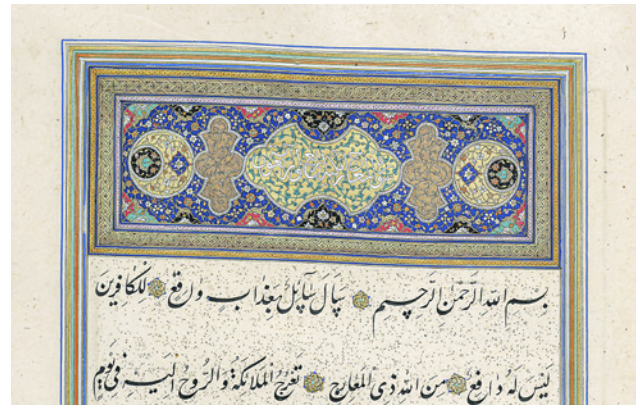 بسم الله الرحمن الرحیم سَاَلَ سَآئِلٌ بِعَذَابٍ وَاقِعٍ لِلْکَافِرِینَ
لَیْسَ لَهُ دَافِعٌ مِنَ اللهِ ذِی الْمَعَارِجِ تَعْرُجُ الْمَلَائِکَةُ وَالرُّوحُ اِلَیْهِ فِی یَوْمٍ